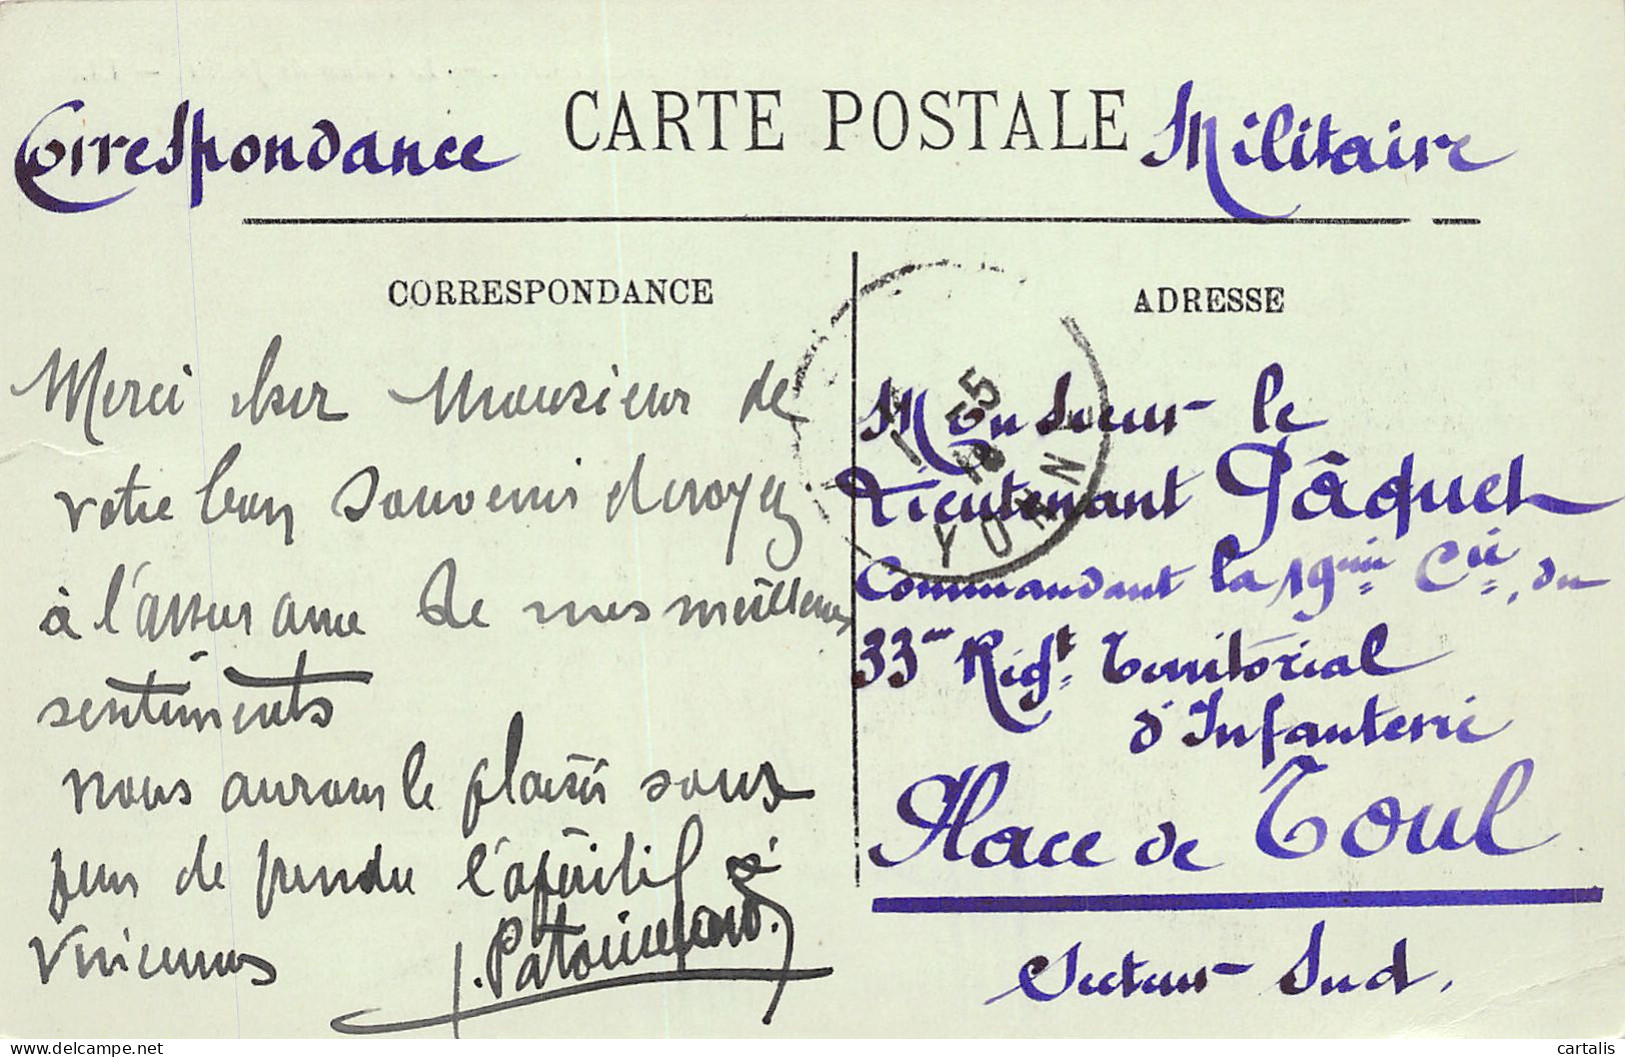 CARTE POSTALE
Correspondance Militaire
CORRESPONDANCE
Merci cher Monsieur de
votre bon souvenir et croyez
à l'assurance de mes meilleurs
sentiments
nous aurons le plaisir sous
peu de prendre l'apéritif à
Vincennes
ADRESSE
Monsieur le
Lieutenant Pâquet
Commandant la 19ème Cie, du
33me Régt Territorial
d'Infanterie
Place de Toul
Secteur Sud.
YONNE
cartalis
www.delcampe.net